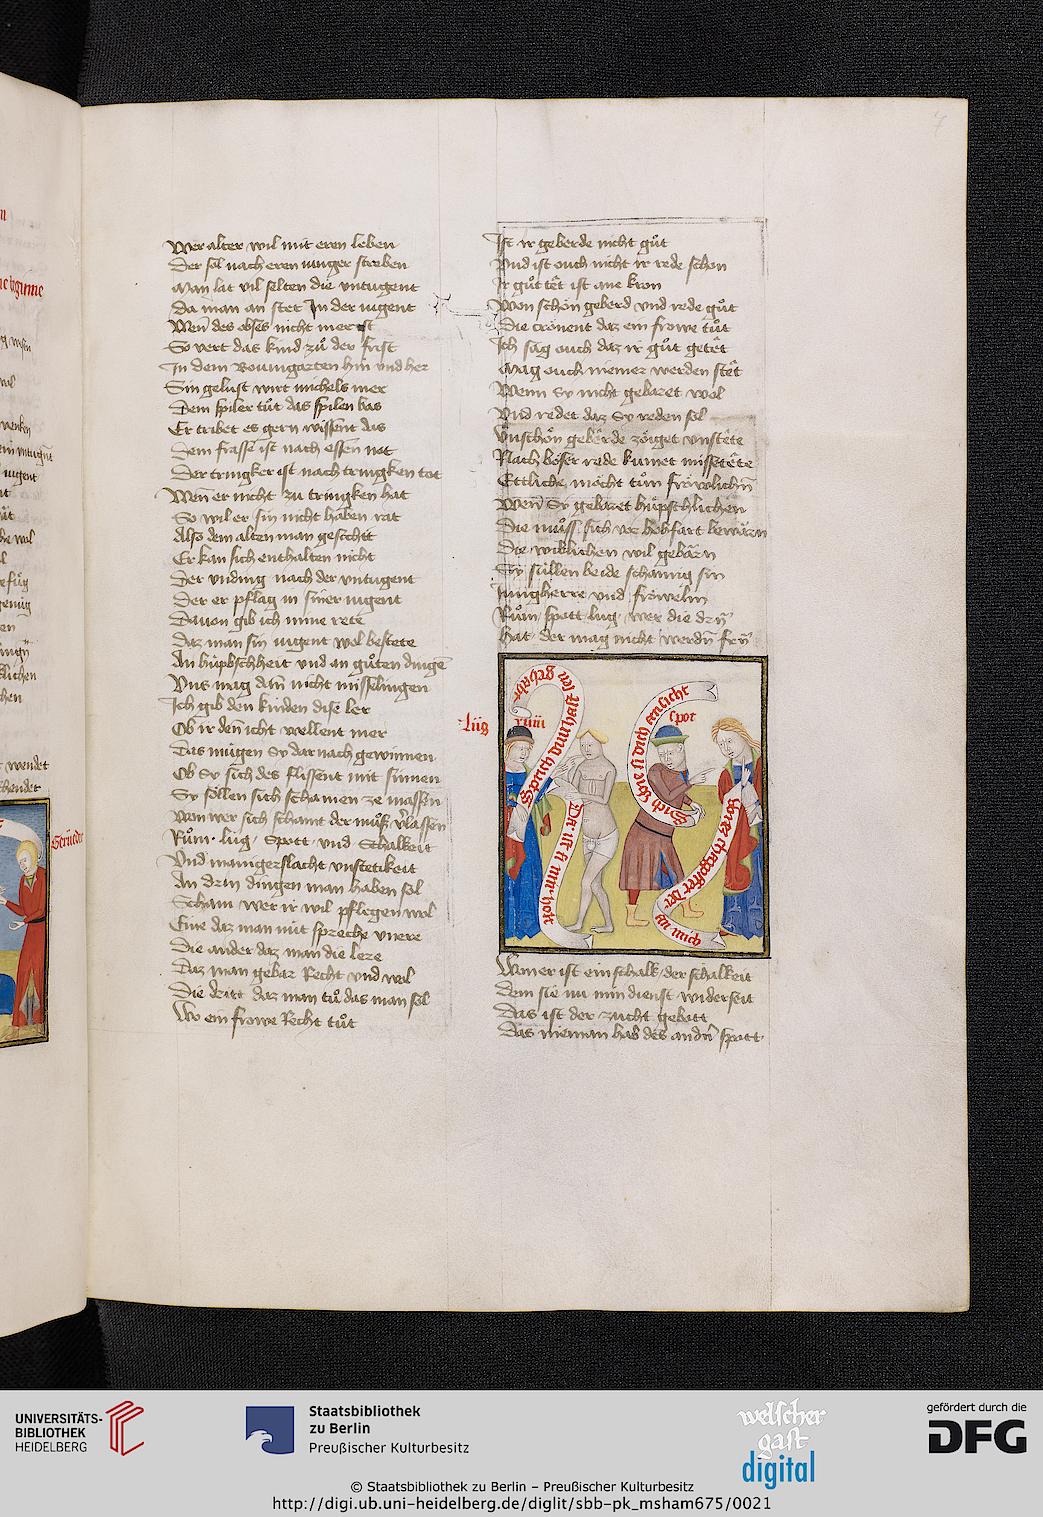 Wer alter wil mit eren leben
Der sol nach eren iunger streben
Man lat vil selten die vntugent
Da man an stet In der iugent
Wen̄ des obses nicht mer ist
So vert das kind zů der frist
In dem Boumgarten hin vnd her
Sin gelust wirt michels mer
Dem spiler tůt das spilen bas
Er tribet es gern wissent das
Dem frasse ist nach essen not
Der tringker ist nach tringken tot
Wen̄ er nicht zu tringken hat
So wil er sin nicht haben rat
Also dem alten man geschit
Er kan sich enthalten nicht
Der vnding nach der vntugent
Der er pflag in siner iugent
Dauon gib ich mine rete
Daz man sin iugent wol bestete
An hüpschheit vnd an gůten dingē
Vns mag dan̄ nicht misselingen
Ich gib den kinden dise ler
Ob ir den icht wellent mer
Das mügen Sy dar nach gewinnen
Ob Sy sich des flissent mit sinnen
Sy söllen sich schamen ze massen
Wan wer sich schamt der můß v̄lassen
Rům lüg Spott vnd Schalkeit
Vnd maniger slacht vnstetikeit
An drin dingen man haben sol
Scham wer ir wil pflegen wol
Eine daz man mit spreche vnere
Die ander daz man die lere
Daz man gebar Recht vnd wol
Die dritt daz man tů das man sol
Wo ein frowe Recht tůt
Ist ir geberde nicht gůt
Vnd ist ouch nicht ir rede schon
Ir gůt tet ist ane kron
Won schön geberd vnd rede gůt
Die crönent daz ein frowe tůt
Ich sag ouch daz ir gůt getet
Mag ouch niemer werden stet
Wenn Sy nicht gebaret wol
Vnd redet daz Sy reden sol
Vnschön geberde zöiget vnstete
Nach böser rede kumet missetete
Ettliche möcht tun fröwlichn̄
Wen̄ Sy gebaret hüpschlichen
Die můss sich vor hohfart bewarn
Die wiblichen wil gebarn
Sy süllen beide schamig sin
Jungherre vnd fröwelin
Rům spott lug wer die dry
Hat der mag nicht werdn̄ fry
Lüg
rům
spot
Sprich du hast
Da ist si min holt
Sich wie si dich an sicht
an mich
Wan er ist ein schalk der schalkeit
Dem sie nu min dienst widerseit
Das ist der zucht gebott
Das nieman hab des andn̄ spott
Gerüede
7
UNIVERSITÄTS-
BIBLIOTHEK
HEIDELBERG
Staatsbibliothek
zu Berlin
Preußischer Kulturbesitz
welscher
gast
digital
gefördert durch die
DFG
© Staatsbibliothek zu Berlin – Preußischer Kulturbesitz
http://digi.ub.uni-heidelberg.de/diglit/sbb-pk_msham675/0021